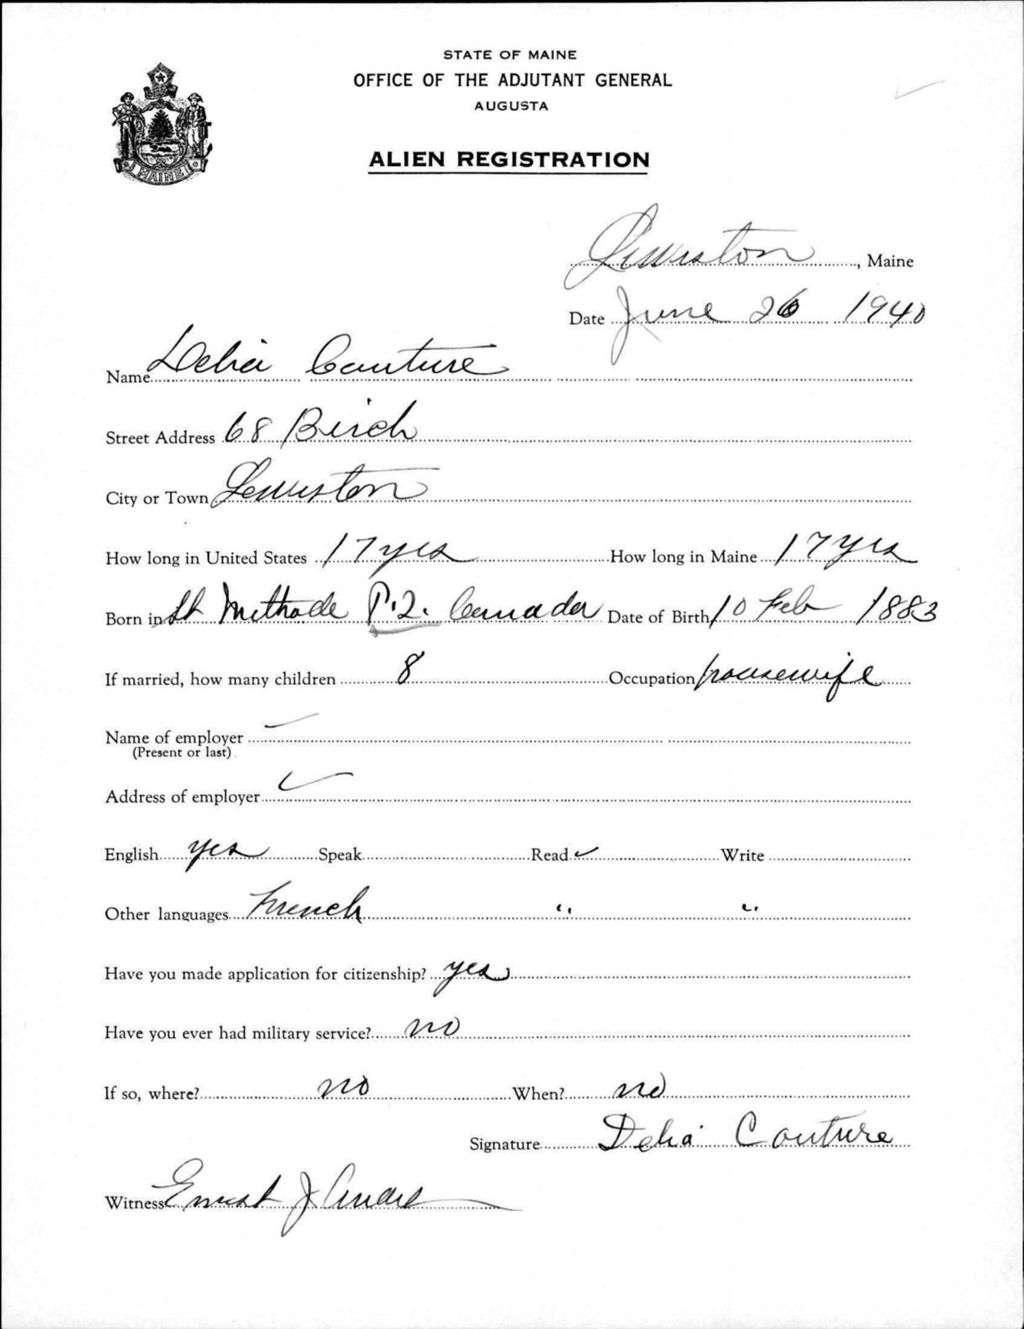 STATE OF MAINE
OFFICE OF THE ADJUTANT GENERAL
AUGUSTA
MAINE
ALIEN REGISTRATION
Lewiston, Maine
Date June 26 1940
Name Delia Couture
Street Address 68 Birch
City or Town Lewiston
How long in United States 17 yrs How long in Maine 17 yrs
Born in St Methode P.Q. Canada Date of Birth 10 Feb 1883
If married, how many children 8 Occupation housewife
Name of employer
(Present or last)
Address of employer
English yes Speak Read ✓ Write
Other languages French " "
Have you made application for citizenship? yes
Have you ever had military service? no
If so, where? no When? no
Signature Delia Couture
Witness Ernest J